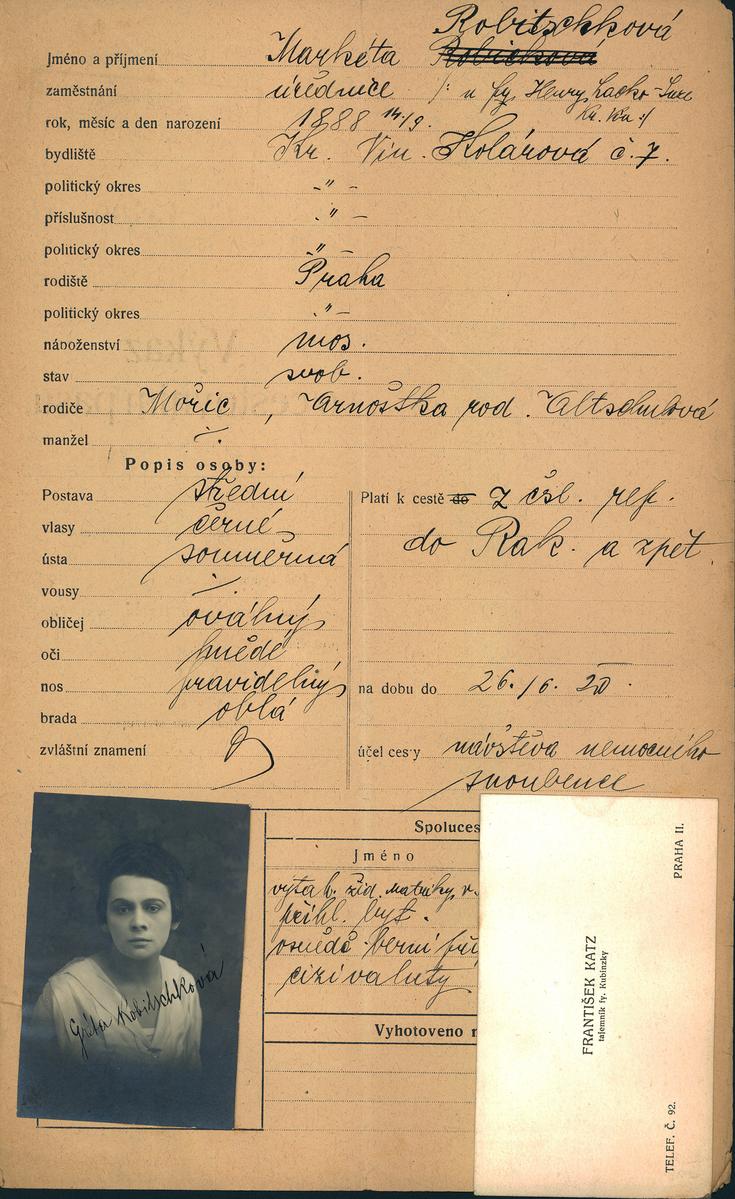 Robitschková
Jméno a příjmení Markéta Robičková
zaměstnání úřednice /: u fy. Henry
Kr. Vin :/
rok, měsíc a den narození 1888 14/9.
bydliště Kr. Vin. Kolárová č. 7.
politický okres -"-
příslušnost -"-
politický okres -"-
rodiště Praha
politický okres -"-
náboženství mos.
stav svob.
rodiče Mořic, Arnoštka roz. Altschulová
manžel ·/·
Popis osoby:
Postava střední
vlasy černé
ústa souměrná
vousy ·/·
obličej oválný
oči hnědé
nos pravidelný
brada oblá
zvláštní znamení
Platí k cestě do z čsl. rep.
do Rak. a zpět
na dobu do 26./6. 20.
účel cesty návštěva nemocného
snoubence
Greta Robitschková
Spoluces
Jméno
výtah žid. matriky
přihl. byt.
osvědč. berní
cizí valuty
Vyhotoveno
FRANTIŠEK KATZ
tajemník fy. Kubinzky
PRAHA II.
TELEF. Č. 92.